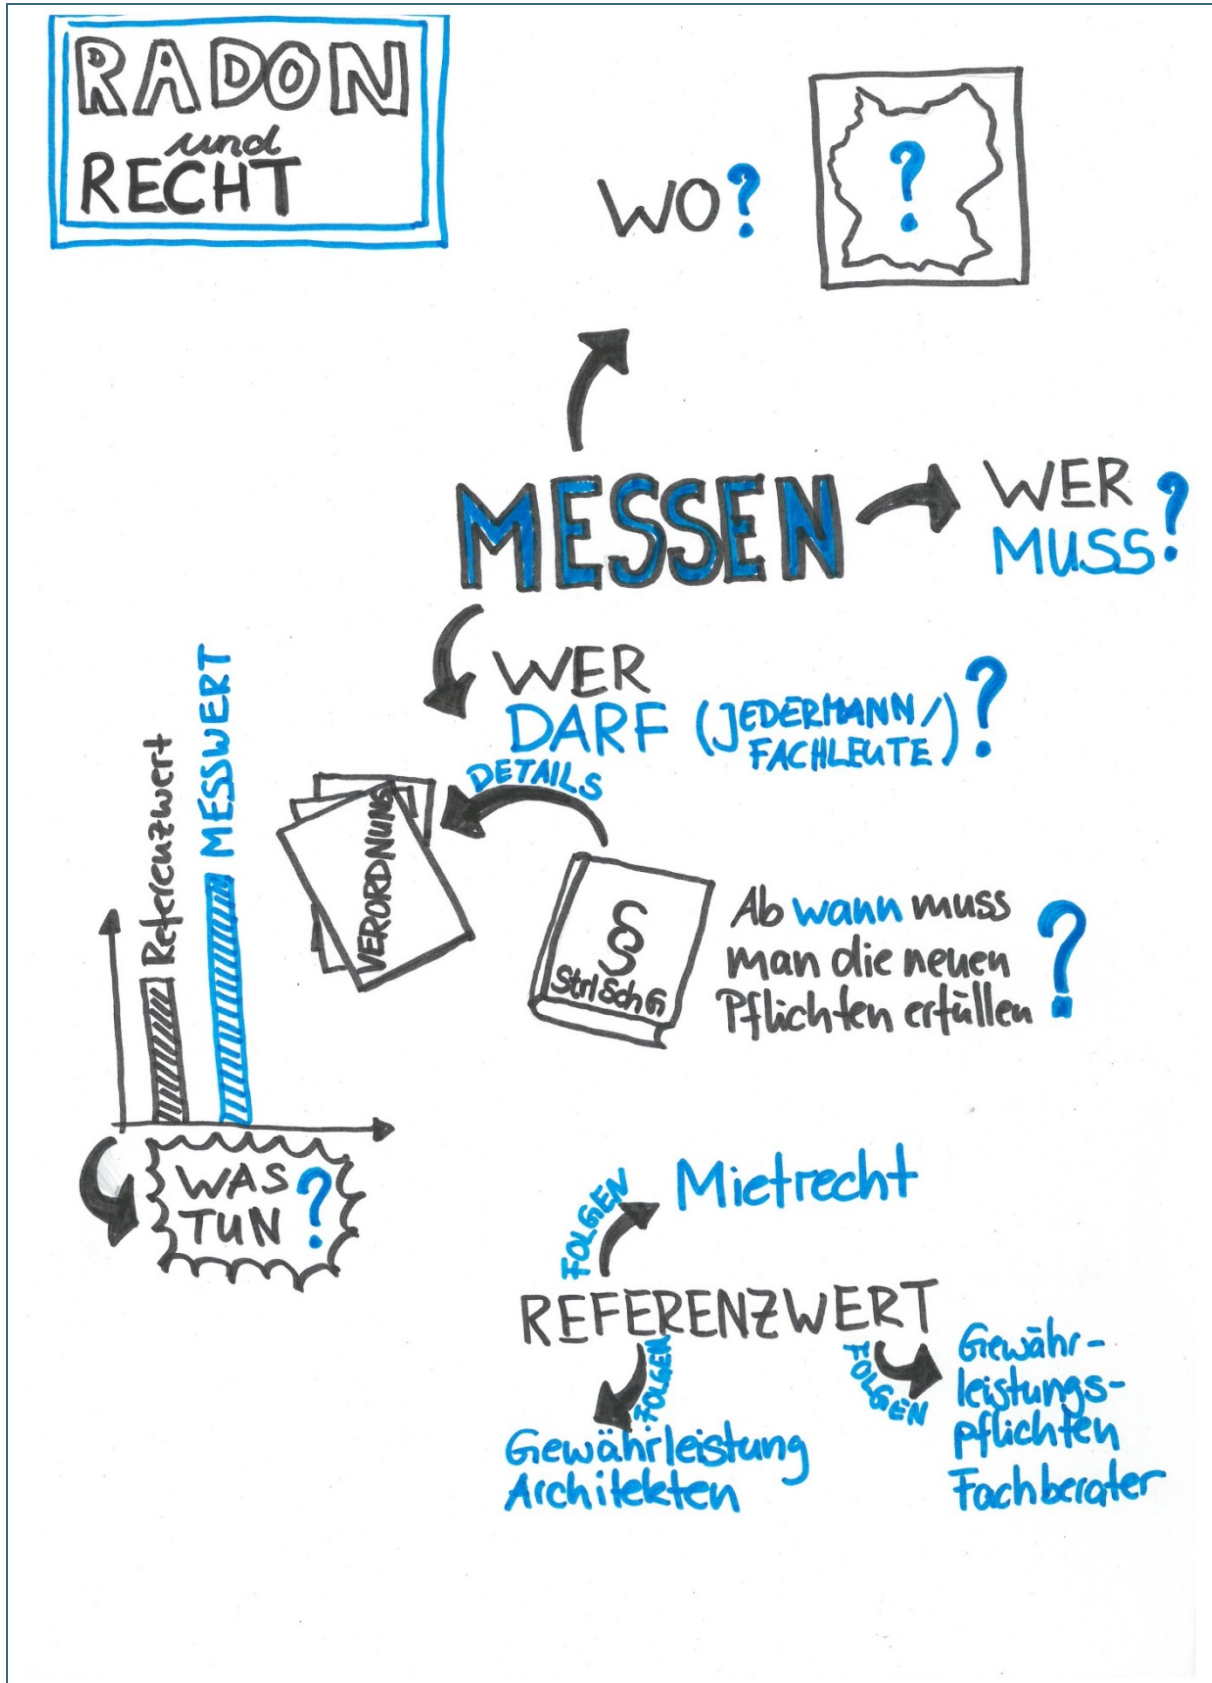 RADON
und
RECHT
WO?
?
MESSEN
WER
MUSS?
WER
DARF (JEDERMANN/
FACHLEUTE)?
DETAILS
VERORDNUNG
§
StrlSchG
Ab wann muss
man die neuen
Pflichten erfüllen?
Referenzwert
MESSWERT
WAS
TUN?
FOLGEN
Mietrecht
REFERENZWERT
FOLGEN
Gewährleistung
Architekten
FOLGEN
Gewähr-
leistungs-
pflichten
Fachberater